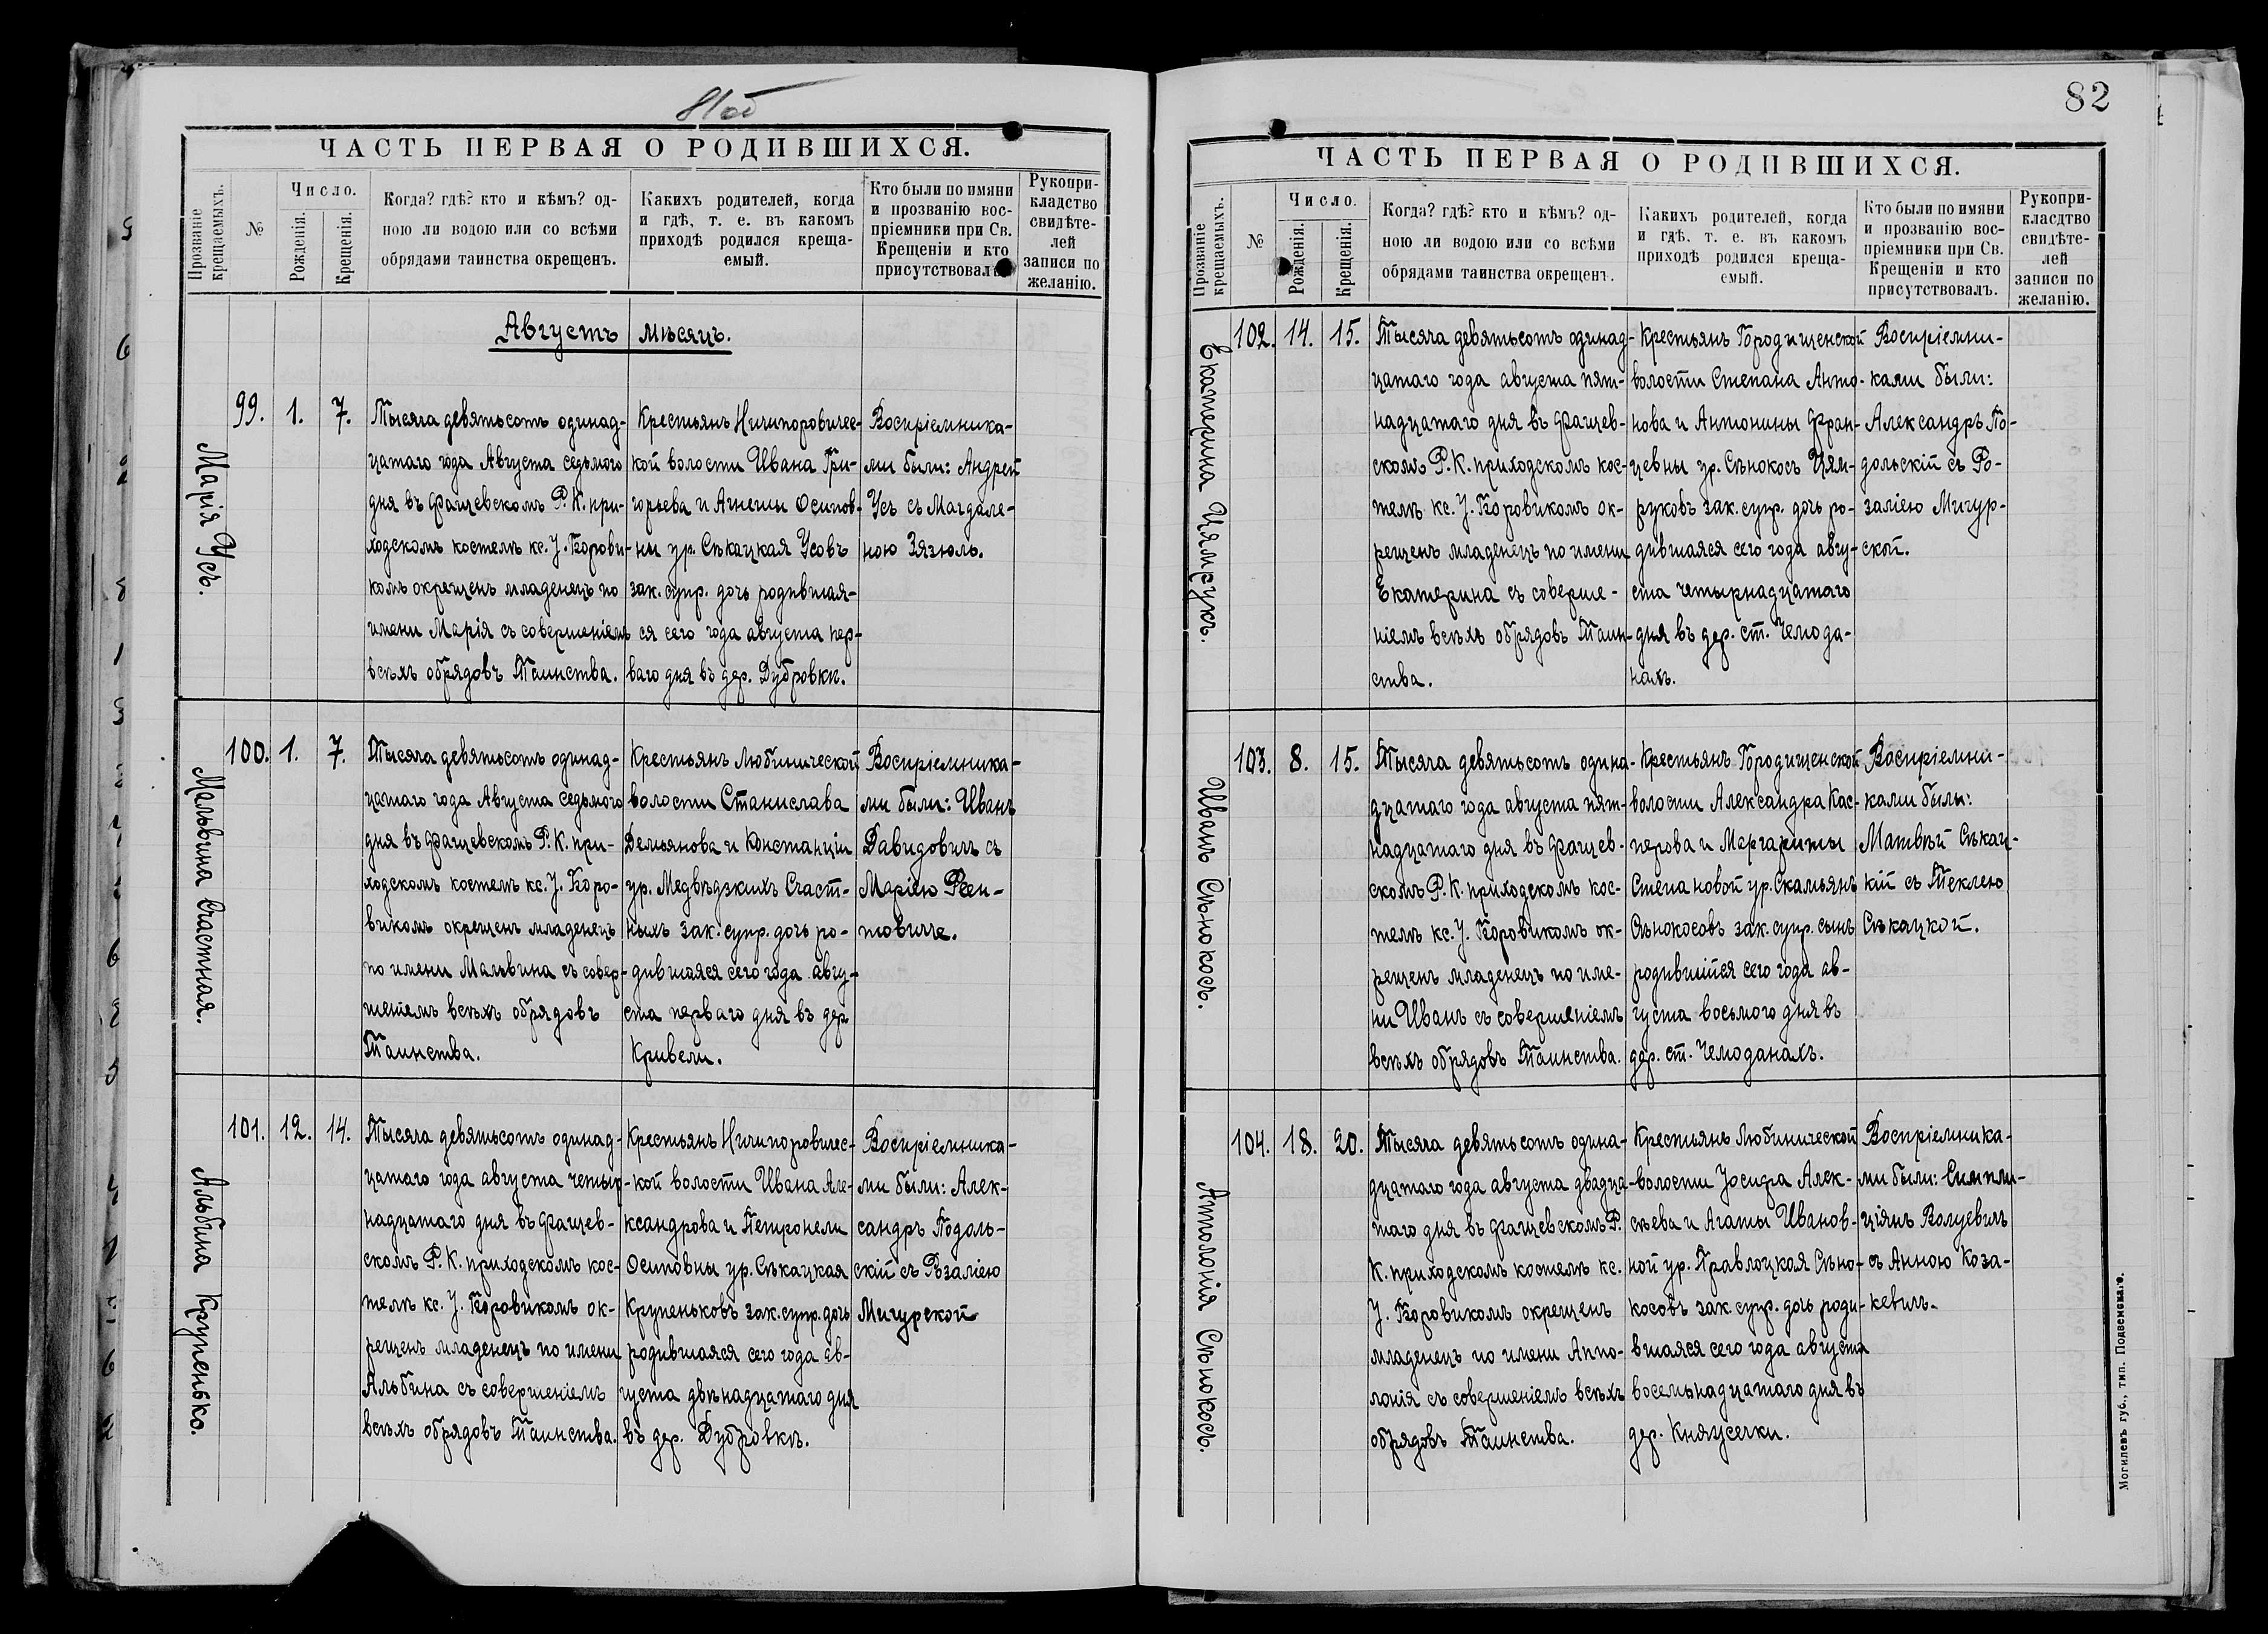 81об
ЧАСТЬ ПЕРВАЯ О РОДИВШИХСЯ.
Прозваніе крещаемыхъ.
№
Число.
Рожденія.
Крещенія.
Когда? гдѣ? кто и кѣмъ? од-
ною ли водою или со всѣми
обрядами таинства окрещенъ.
Какихъ родителей, когда
и гдѣ, т. е. въ какомъ
приходѣ родился креща-
емый.
Кто были по имяни
и прозванію вос-
пріемники при Св.
Крещеніи и кто
присутствовалъ.
Рукопри-
кладство
свидѣте-
лей
записи по
желанію.
Августъ мѣсяцъ.
Марія Усъ.
99. 1. 7.
Тысяча девятьсотъ одинад-
цатаго года Августа седьмого
дня въ Фащевскомъ Р. К. при-
ходскомъ костелѣ кс. У. Борови-
комъ окрещенъ младенецъ по
имени Марія съ совершеніемъ
всѣхъ обрядовъ Таинства.
Крестьянъ Ничипоровичес-
кой волости Ивана Гри-
горьева и Агнешы Осипов-
ны ур. Сѣкацкая Усовъ
зак. супр. дочь родившая-
ся сего года августа пер-
ваго дня въ дер. Дубровкѣ.
Воспріемника-
ми были: Андрей
Усъ съ Магдале-
ною Зязюль.
Мальвина Счастная.
100. 1. 7.
Тысяча девятьсотъ одинад-
цатаго года Августа седьмого
дня въ Фащевскомъ Р. К. при-
ходскомъ костелѣ кс. У. Боро-
викомъ окрещенъ младенецъ
по имени Мальвина съ совер-
шеніемъ всѣхъ обрядовъ
Таинства.
Крестьянъ Любинической
волости Станислава
Демьянова и Констанціи
ур. Медвѣдзкихъ Счаст-
ныхъ зак. супр. дочь ро-
дившаяся сего года авгу-
ста перваго дня въ дер.
Кривели.
Воспріемника-
ми были: Иванъ
Давидовичъ съ
Маріею Реен-
товичъ.
Альбина Крупенько.
101. 12. 14.
Тысяча девятьсотъ одинад-
цатаго года августа четыр-
надцатаго дня въ Фащев-
скомъ Р. К. приходскомъ кос-
телѣ кс. У. Боровикомъ ок-
рещенъ младенецъ по имени
Альбина съ совершеніемъ
всѣхъ обрядовъ Таинства.
Крестьянъ Ничипоровичес-
кой волости Ивана Але-
ксандрова и Петронели
Осиповны ур. Сѣкацкая
Крупеньковъ зак. супр. дочь
родившаяся сего года ав-
густа двѣнадцатаго дня
въ дер. Дубровкѣ.
Воспріемника-
ми были: Алек-
сандръ Подоль-
скій съ Розаліею
Мигурской
82
ЧАСТЬ ПЕРВАЯ О РОДИВШИХСЯ.
Прозваніе крещаемыхъ.
№
Число.
Рожденія.
Крещенія.
Когда? гдѣ? кто и кѣмъ? од-
ною ли водою или со всѣми
обрядами таинства окрещенъ.
Какихъ родителей, когда
и гдѣ, т. е. въ какомъ
приходѣ родился креща-
емый.
Кто были по имяни
и прозванію вос-
пріемники при Св.
Крещеніи и кто
присутствовалъ.
Рукопри-
класдтво
свидѣте-
лей
записи по
желанію.
Екатерина Цямрукъ.
102. 14. 15.
Тысяча девятьсотъ одинад-
цатаго года августа пят-
надцатаго дня въ Фащев-
скомъ Р. К. приходскомъ кос-
телѣ кс. У. Боровикомъ ок-
рещенъ младенецъ по имени
Екатерина съ соверше-
ніемъ всѣхъ обрядовъ Таин-
ства.
Крестьянъ Городищенской
волости Степана Анто-
нова и Антонины Фран-
цевны ур. Сѣнокосъ Цям-
руковъ зак. супр. дочь ро-
дившаяся сего года авгу-
ста четырнадцатаго
дня въ дер. ст. Чемода-
нахъ.
Воспріемни-
ками были:
Александръ По-
дольскій съ Ро-
заліею Мигур-
ской.
Иванъ Сѣнокосъ.
103. 8. 15.
Тысяча девятьсотъ одина-
дцатаго года августа пят-
надцатаго дня въ Фащев-
скомъ Р. К. приходскомъ кос-
телѣ кс. У. Боровикомъ ок-
рещенъ младенецъ по име-
ни Иванъ съ совершеніемъ
всѣхъ обрядовъ Таинства.
Крестьянъ Городищенской
волости Александра Кас-
перова и Маргариты
Степановой ур. Скамьянъ
Сѣнокосовъ зак. супр. сынъ
родившійся сего года ав-
густа восьмого дня въ
дер. ст. Чемоданахъ.
Воспріемни-
ками были:
Матвѣй Сѣкац-
кій съ Теклею
Сѣкацкой.
Апполонія Сѣнокосъ.
104. 18. 20.
Тысяча девятьсотъ одина-
дцатаго года августа двадца-
таго дня въ Фащевскомъ Р.
К. приходскомъ костелѣ кс.
У. Боровикомъ окрещенъ
младенецъ по имени Аппо-
лонія съ совершеніемъ всѣхъ
обрядовъ Таинства.
Крестьянъ Любинической
волости Іосифа Алек-
сѣева и Агаты Иванов-
ной ур. Правлоцкая Сѣно-
косовъ зак. супр. дочь роди-
вшаяся сего года августа
восемьнадцатаго дня въ
дер. Княусечки.
Воспріемника-
ми были: Симпли-
ціянъ Волуевичъ
съ Анною Коза-
кевичъ.
Могилевъ губ., тип. Подвенскаго.